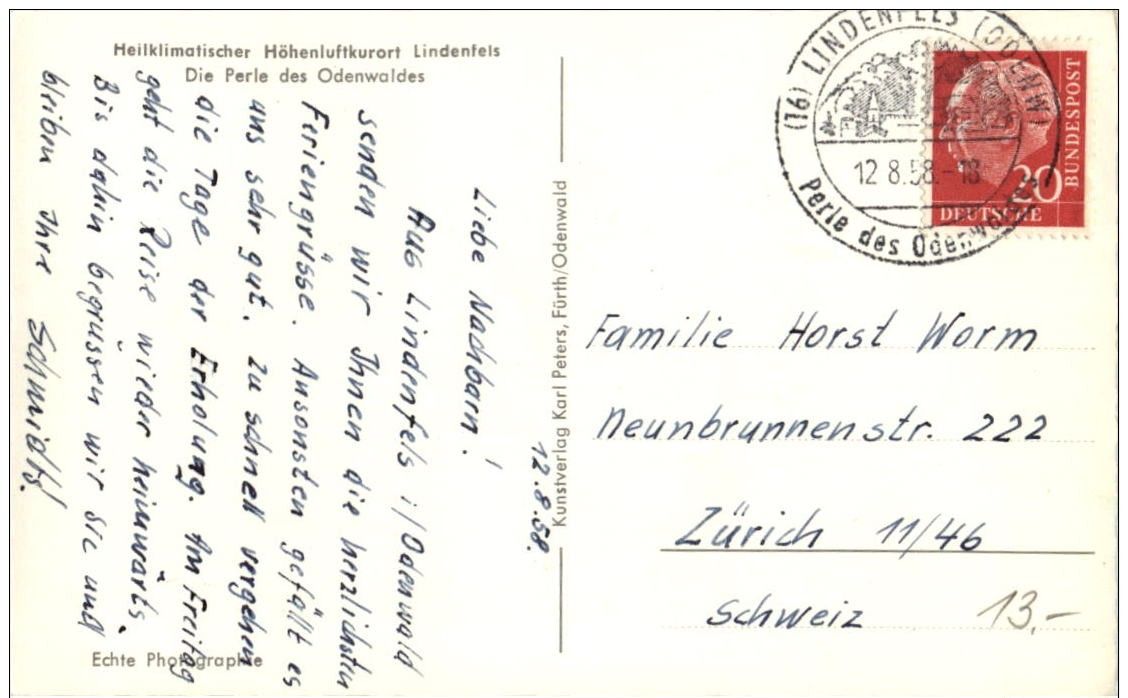 Heilklimatischer Höhenluftkurort Lindenfels
Die Perle des Odenwaldes
12.8.58.
Liebe Nachbarn!
Aus Lindenfels i/Odenwald
senden wir Ihnen die herzlichsten
Feriengrüsse. Ansonsten gefällt es
uns sehr gut. Zu schnell vergehen
die Tage der Erholung. Am Freitag
geht die Reise wieder heimwärts.
Bis dahin begrüssen wir Sie und
bleiben Ihre Schmidts!
Echte Photographie
Kunstverlag Karl Peters, Fürth/Odenwald
(16) LINDENFELS (ODENW)
12.8.58.-18
Perle des Odenwaldes
20
DEUTSCHE
BUNDESPOST
Familie Horst Worm
Neunbrunnenstr. 222
Zürich 11/46
Schweiz
13.-